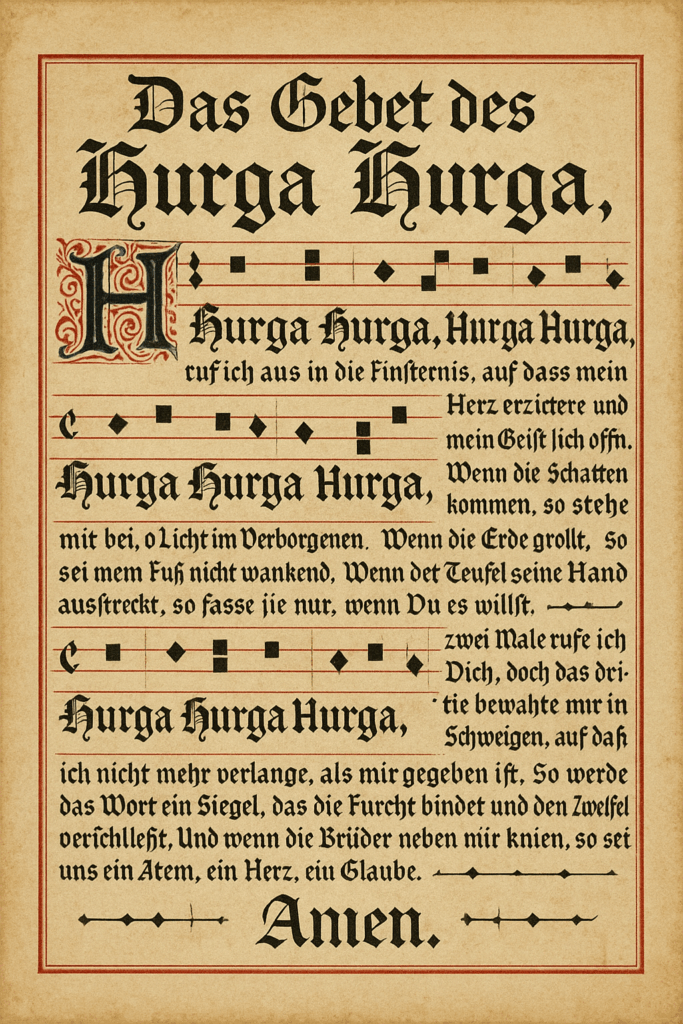 Das Gebet des
Hurga Hurga,
H
Hurga Hurga, Hurga Hurga,
ruf ich aus in die Finſternis, auf dass mein
Herz erzictere und
mein Geiſt ſich offn.
Hurga Hurga Hurga,
Wenn die Schatten
kommen, so stehe
mit bei, o Licht im Verborgenen. Wenn die Erde grollt, So
sei mem Fuß nicht wankend, Wenn det Teufel seine Hand
ausſtreckt, so fasse jie nur, wenn Du es willſt.
zwei Male rufe ich
Dich, doch das dri-
Hurga Hurga Hurga,
tie bewahte mır in
Schweigen, auf daß
ich nicht mehr verlange, als mir gegeben iſt, So werde
das Wort ein Siegel, das die Furcht bindet und den Zwelfel
verſchlleßt, Und wenn die Brüder neben mir knien, so sei
uns ein Atem, ein Herz, eiu Glaube.
Amen.